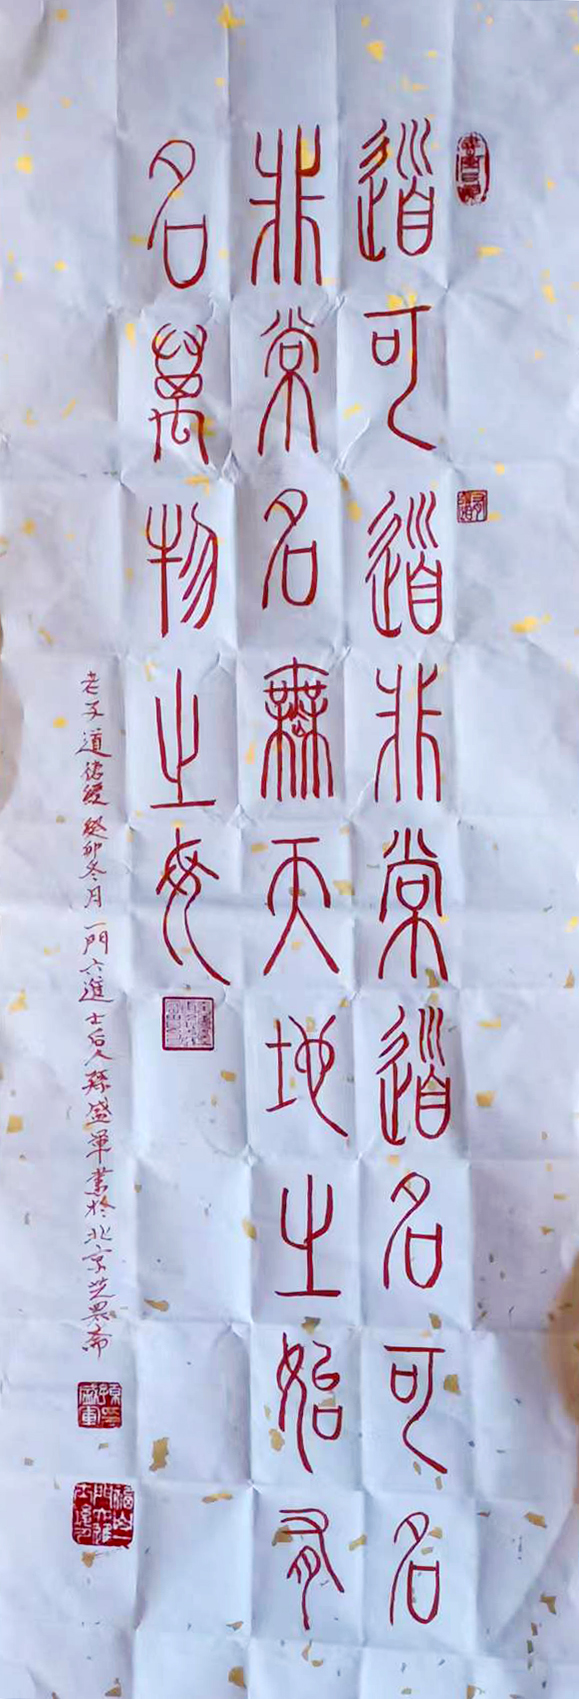 道可道非常道名可名
非常名無天地之始有
名萬物之母
老子道德經癸卯冬月一門六進士后人孫盛軍業於北京芝墨齋
孫盛軍印